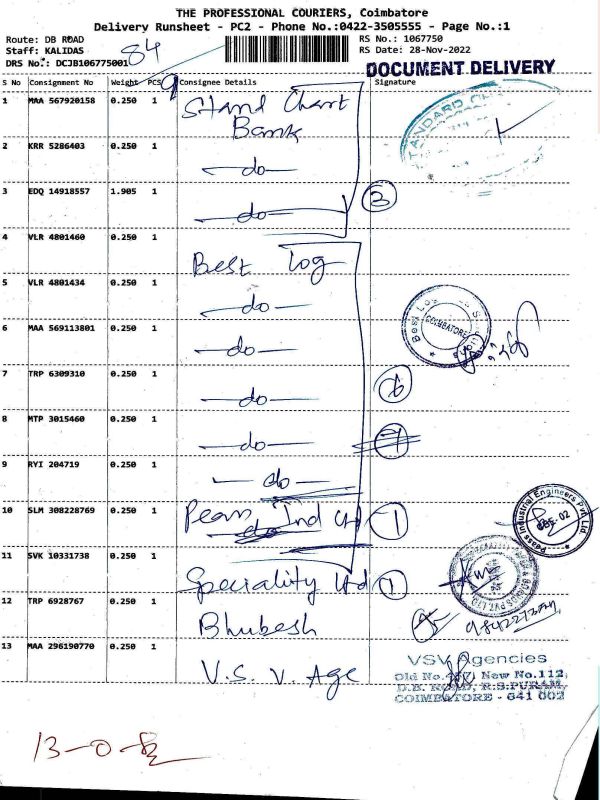 THE PROFESSIONAL COURIERS, Coimbatore
Delivery Runsheet - PC2 - Phone No.:0422-3505555 - Page No.:1
Route: DB ROAD
Staff: KALIDAS
DRS No.: DCJB106775001
84
RS No.: 1067750
RS Date: 28-Nov-2022
DOCUMENT DELIVERY
S No Consignment No Weight PCS Consignee Details Signature
9
1 MAA 567920158 0.250 1 Stand Chart
Bank
2 KRR 5286403 0.250 1 —do—
3 EDQ 14918557 1.905 1 —do— 3
4 VLR 4801460 0.250 1 Best Log
5 VLR 4801434 0.250 1 —do—
COIMBATORE
6 MAA 569113801 0.250 1 —do—
7 TRP 6309310 0.250 1 —do— 6
8 MTP 3015460 0.250 1 —do— 7
9 RYI 204719 0.250 1 —do—
10 SLM 308228769 0.250 1 Peass Ind Ltd 1
do
Peass Industrial Engineers Pvt. Ltd.
11 SVK 10331738 0.250 1 Speciality Ltd 1
12 TRP 6928767 0.250 1 Bhubesh
13 MAA 296190770 0.250 1 V.S.V. Age
VSV Agencies
Old No. New No.112,
D.B. ROAD, R.S.PURAM,
COIMBATORE - 641 002
13-0-